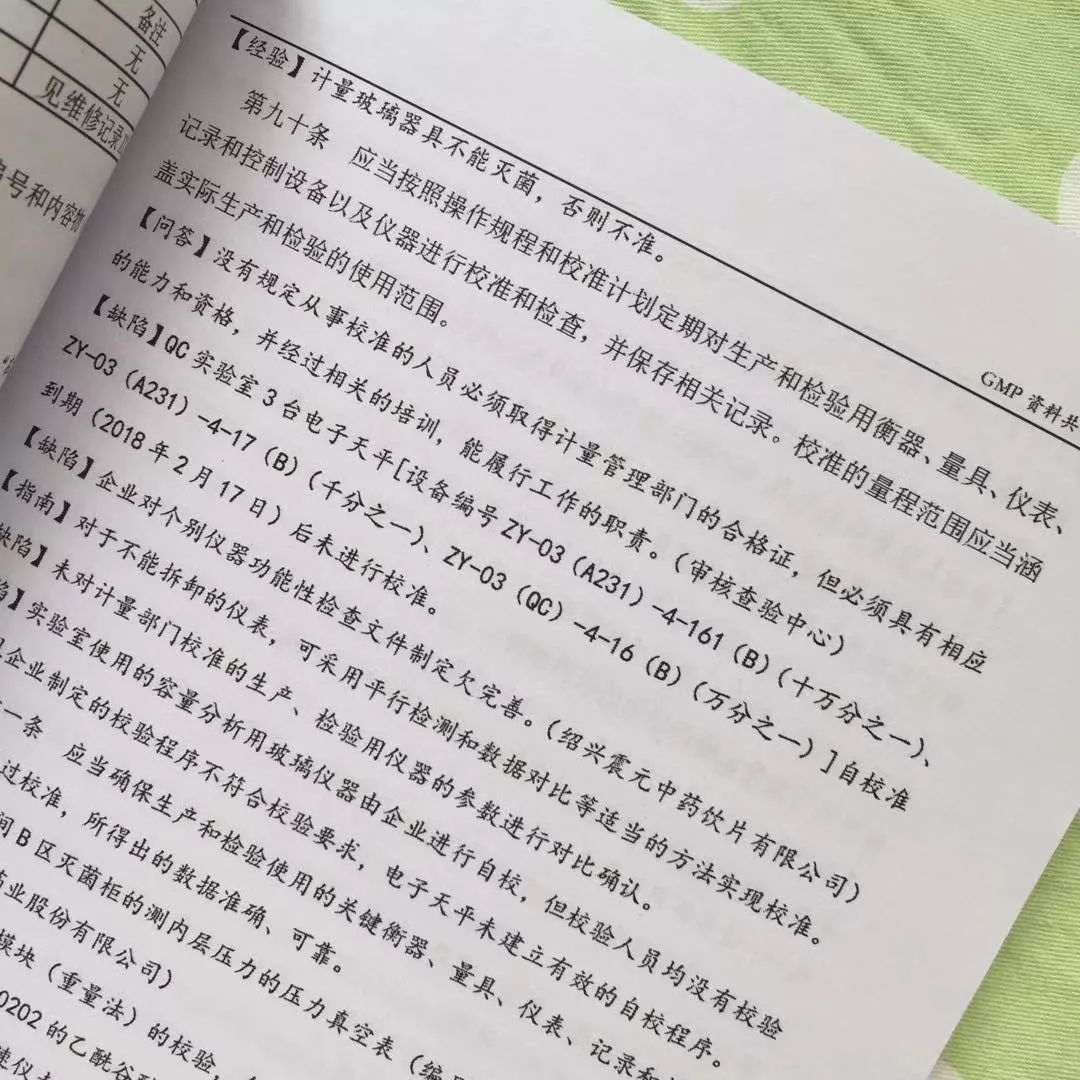 备注
无
无
见维修记录
号和内容物
GMP 资料共
【经验】计量玻璃器具不能灭菌，否则不准。
第九十条 应当按照操作规程和校准计划定期对生产和检验用衡器、量具、仪表、
记录和控制设备以及仪器进行校准和检查，并保存相关记录。校准的量程范围应当涵
盖实际生产和检验的使用范围。
【问答】没有规定从事校准的人员必须取得计量管理部门的合格证，但必须具有相应
的能力和资格，并经过相关的培训，能履行工作的职责。（审核查验中心）
【缺陷】QC 实验室 3 台电子天平[设备编号 ZY-03（A231）-4-161（B）（十万分之一）、
ZY-03（A231）-4-17（B）（千分之一）、ZY-03（QC）-4-16（B）（万分之一）]自校准
到期（2018 年 2 月 17 日）后未进行校准。
【缺陷】企业对个别仪器功能性检查文件制定欠完善。（绍兴震元中药饮片有限公司）
【指南】对于不能拆卸的仪表，可采用平行检测和数据对比等适当的方法实现校准。
缺陷】未对计量部门校准的生产、检验用仪器的参数进行对比确认。
陷】实验室使用的容量分析用玻璃仪器由企业进行自校，但校验人员均没有校验
企业制定的校验程序不符合校验要求，电子天平未建立有效的自校程序。
一条 应当确保生产和检验使用的关键衡器、量具、仪表、记录和
过校准，所得出的数据准确、可靠。
间 B 区灭菌柜的测内层压力的压力真空表（编
药业股份有限公司）
模块（重量法）的校验，
0202 的乙酰谷
键仪表